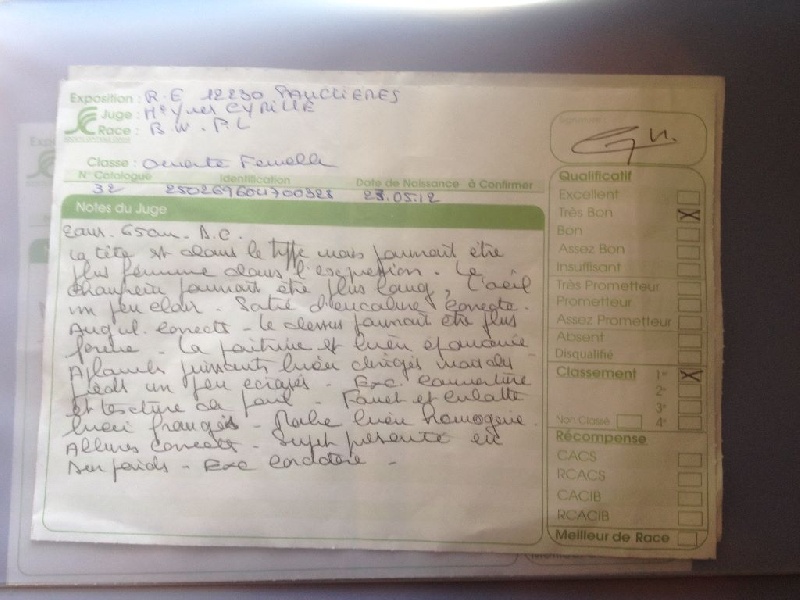 Exposition : R.E 12230 NAUCLIERES
Juge : Meynier CYRILLE
Race : B.W.P.L
Classe : Ouverte Femelle
N° Catalogue Identification Date de Naissance à Confirmer
32 250269604700328 28.05.12
Notes du Juge
2ans. 65cm. D.C.
La tête est dans le type mais pourrait être
plus féminine dans l'expression. Le
chanfrein pourrait être plus long, L'oeil
un peu clair. Sortie d'encolure correcte.
Angul. correcte - le dessus pourrait être plus
ferme. La poitrine est bien
Aplombs puissants bien dirigés mais les
pieds un peu écrasés - Exc. couverture
et texture du poil - Fouet et culotte
bien frangés - Robe bien homogène.
Allures correctes - Sujet présenté en
bon poids - Exc caractère -
Qualificatif
Excellent
Très Bon
Bon
Assez Bon
Insuffisant
Très Prometteur
Prometteur
Assez Prometteur
Absent
Disqualifié
Classement 1er
2e
3e
Non Classé 4e
Récompense
CACS
RCACS
CACIB
RCACIB
Meilleur de Race